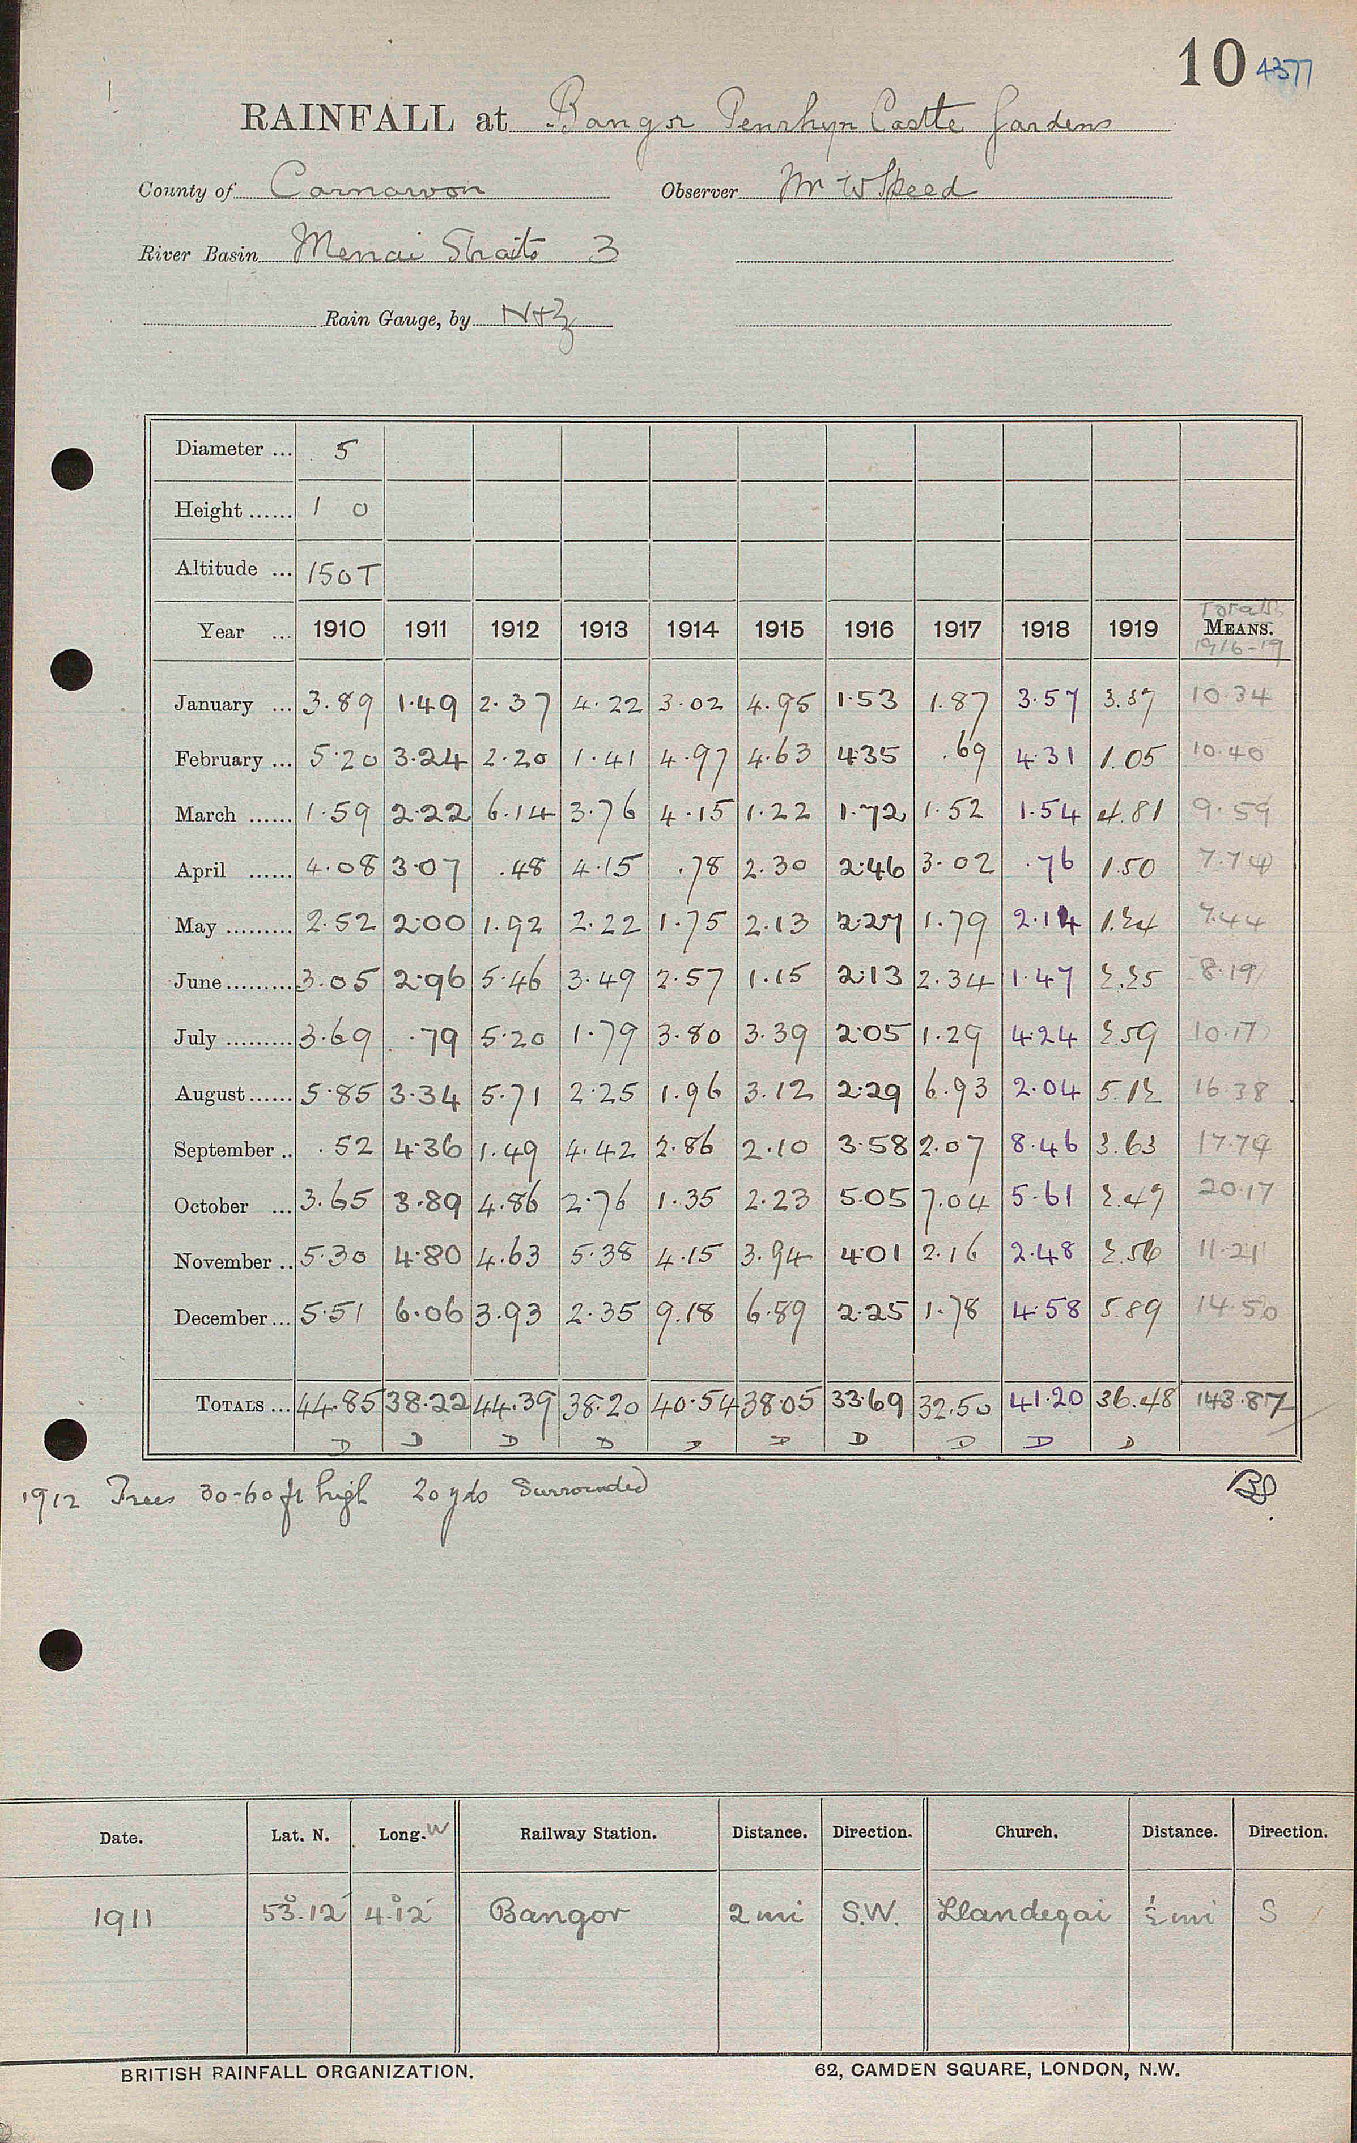 10 4377
RAINFALL at Bangor Penrhyn Castle Gardens
County of Carnarvon Observer Mr W Speed
River Basin Menai Straits 3
Rain Gauge, by N+Z
Diameter ... 5
Height ...... 1 0
Altitude ... 150T
Totals
Year ... 1910 1911 1912 1913 1914 1915 1916 1917 1918 1919 MEANS.
1916-19
January ... 3.89 1.49 2.37 4.22 3.02 4.95 1.53 1.87 3.57 3.37 10.34
February ... 5.20 3.24 2.20 1.41 4.97 4.63 4.35 .69 4.31 1.05 10.40
March ...... 1.59 2.22 6.14 3.76 4.15 1.22 1.72 1.52 1.54 4.81 9.59
April ...... 4.08 3.07 .48 4.15 .78 2.30 2.46 3.02 .76 1.50 7.74
May ......... 2.52 2.00 1.92 2.22 1.75 2.13 2.27 1.79 2.14 1.24 7.44
June ......... 3.05 2.96 5.46 3.49 2.57 1.15 2.13 2.34 1.47 2.25 8.19
July ......... 3.69 .79 5.20 1.79 3.80 3.39 2.05 1.29 4.24 2.59 10.17
August ...... 5.85 3.34 5.71 2.25 1.96 3.12 2.29 6.93 2.04 5.12 16.38
September .. .52 4.36 1.49 4.42 2.86 2.10 3.58 2.07 8.46 3.63 17.74
October ... 3.65 3.89 4.86 2.76 1.35 2.23 5.05 7.04 5.61 2.47 20.17
November .. 5.30 4.80 4.63 5.38 4.15 3.94 4.01 2.16 2.48 2.56 11.21
December ... 5.51 6.06 3.93 2.35 9.18 6.89 2.25 1.78 4.58 5.89 14.50
TOTALS ... 44.85 38.22 44.39 38.20 40.54 38.05 33.69 32.50 41.20 36.48 143.87
D D D D D D D D D D
1912 Trees 30-60 ft high 20 yds Surrounded
Date. Lat. N. Long. W Railway Station. Distance. Direction. Church. Distance. Direction.
1911 53°.12' 4°.12' Bangor 2 mi S.W. Llandegai ½ mi S
BRITISH RAINFALL ORGANIZATION. 62, CAMDEN SQUARE, LONDON, N.W.